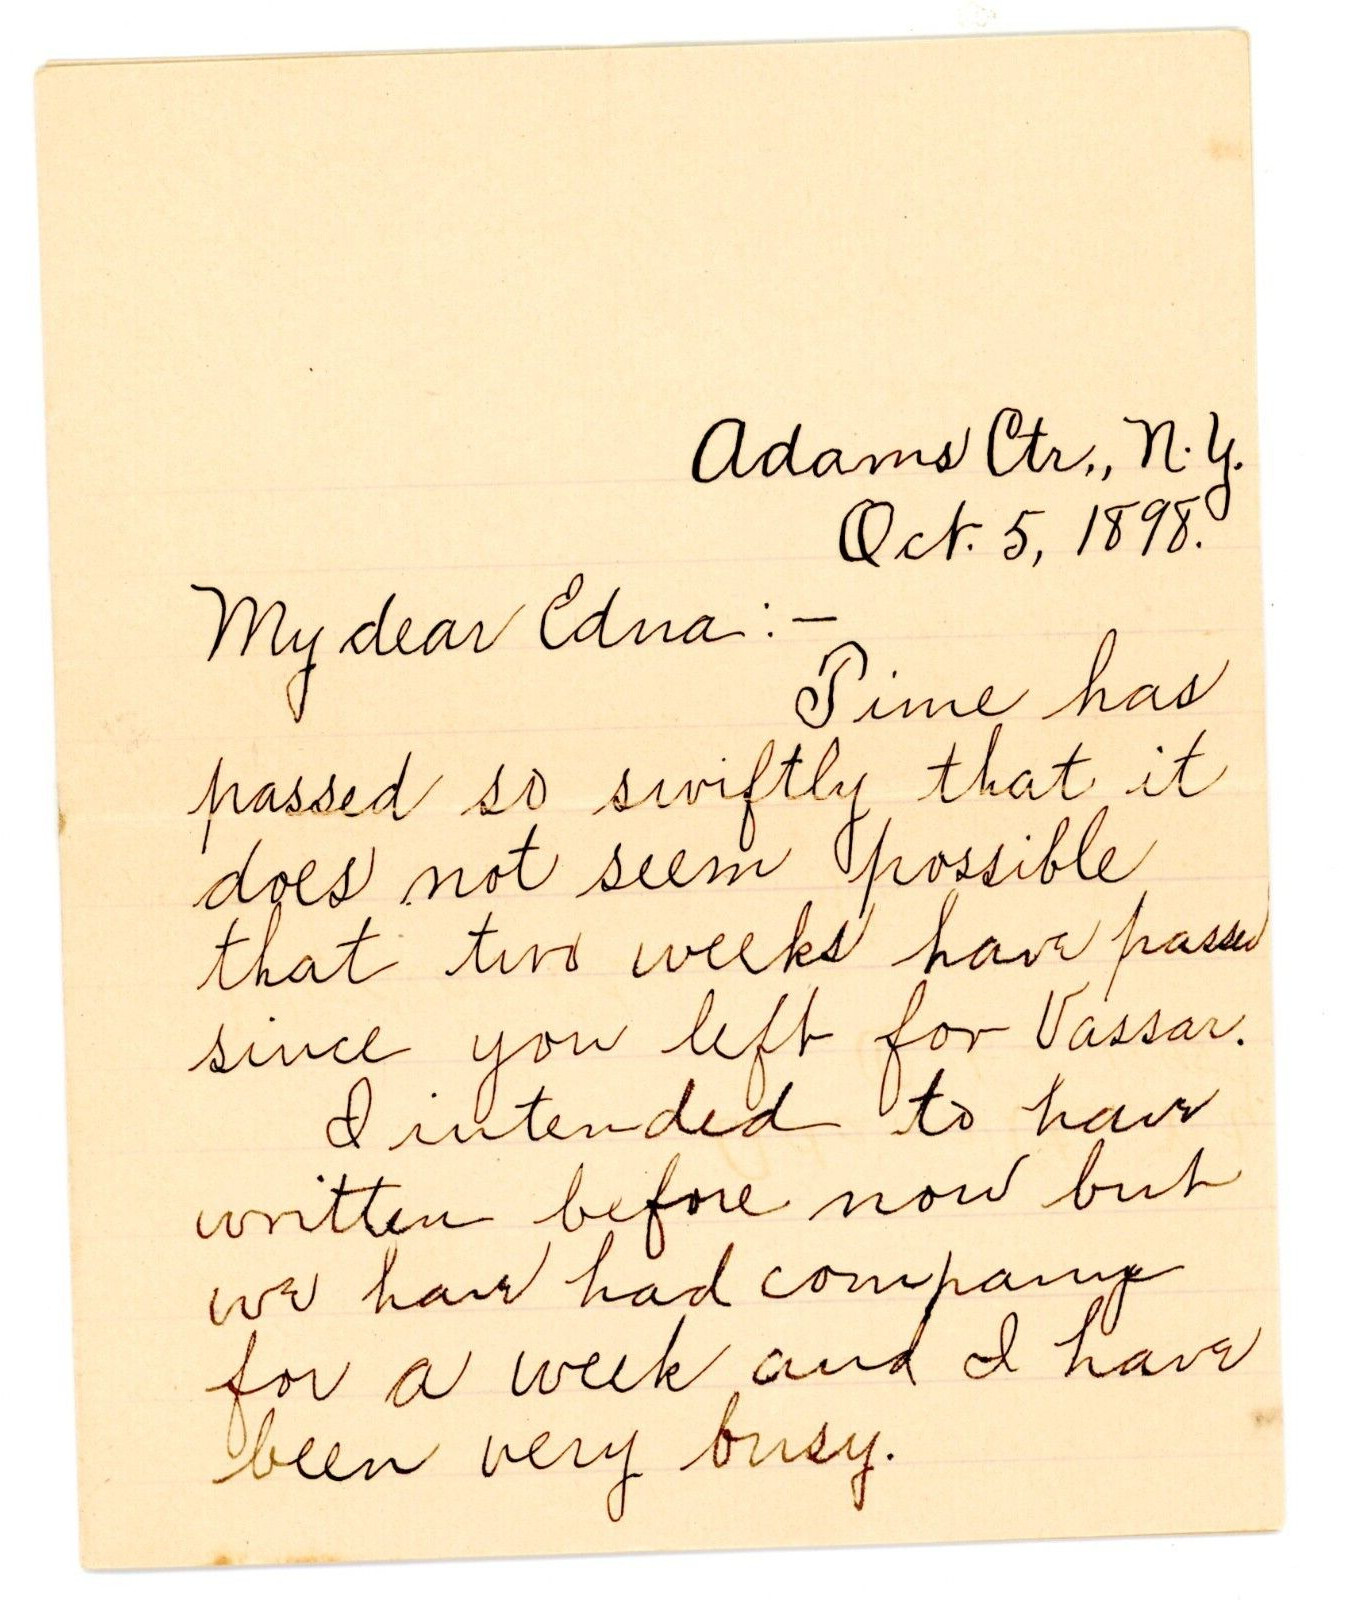 Adams Ctr., N.Y.
Oct. 5, 1898.
My dear Edna:-
Time has
passed so swiftly that it
does not seem possible
that two weeks have passed
since you left for Vassar.
I intended to have
written before now but
we have had company
for a week and I have
been very busy.